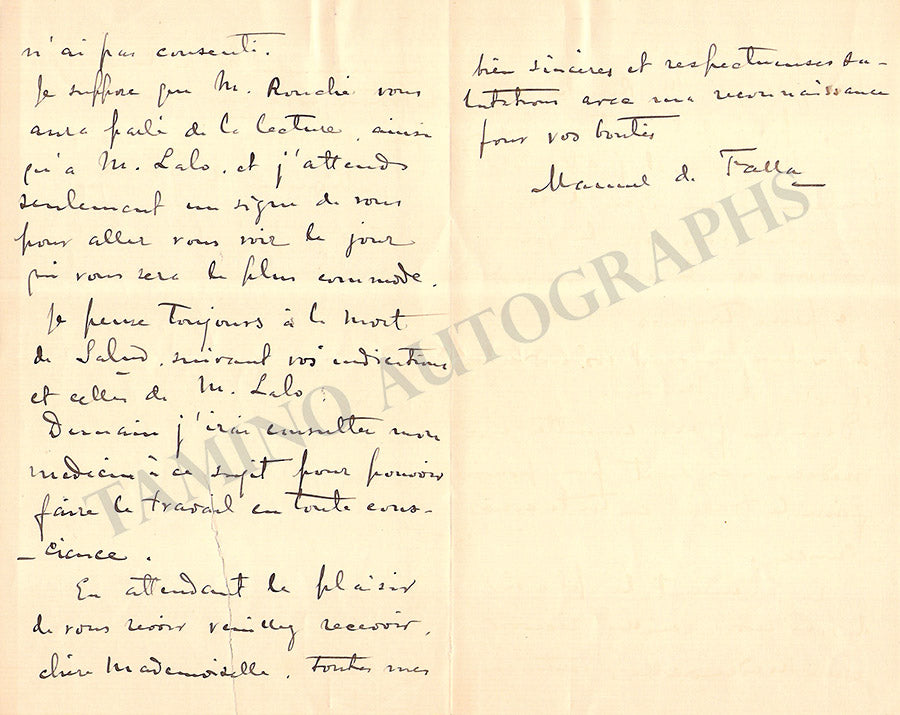 n'ai pas consenti.
Je suppose que M. Rouché vous
aura parlé de la lecture, ainsi
qu'à M. Lalo, et j'attends
seulement un signe de vous
pour aller vous voir le jour
qui vous sera le plus commode.
Je pense toujours à la mort
de Salud, suivant vos indications
et celles de M. Lalo.
Demain j'irai consulter mon
medecin à ce sujet pour pouvoir
faire le travail en toute cons-
-cience.
En attendant le plaisir
de vous revoir veuillez recevoir,
chère Mademoiselle, toutes mes
bien sincères et respectueuses sa-
lutations avec ma reconnaissance
pour vos bontés
Manuel de Falla
TAMINO AUTOGRAPHS